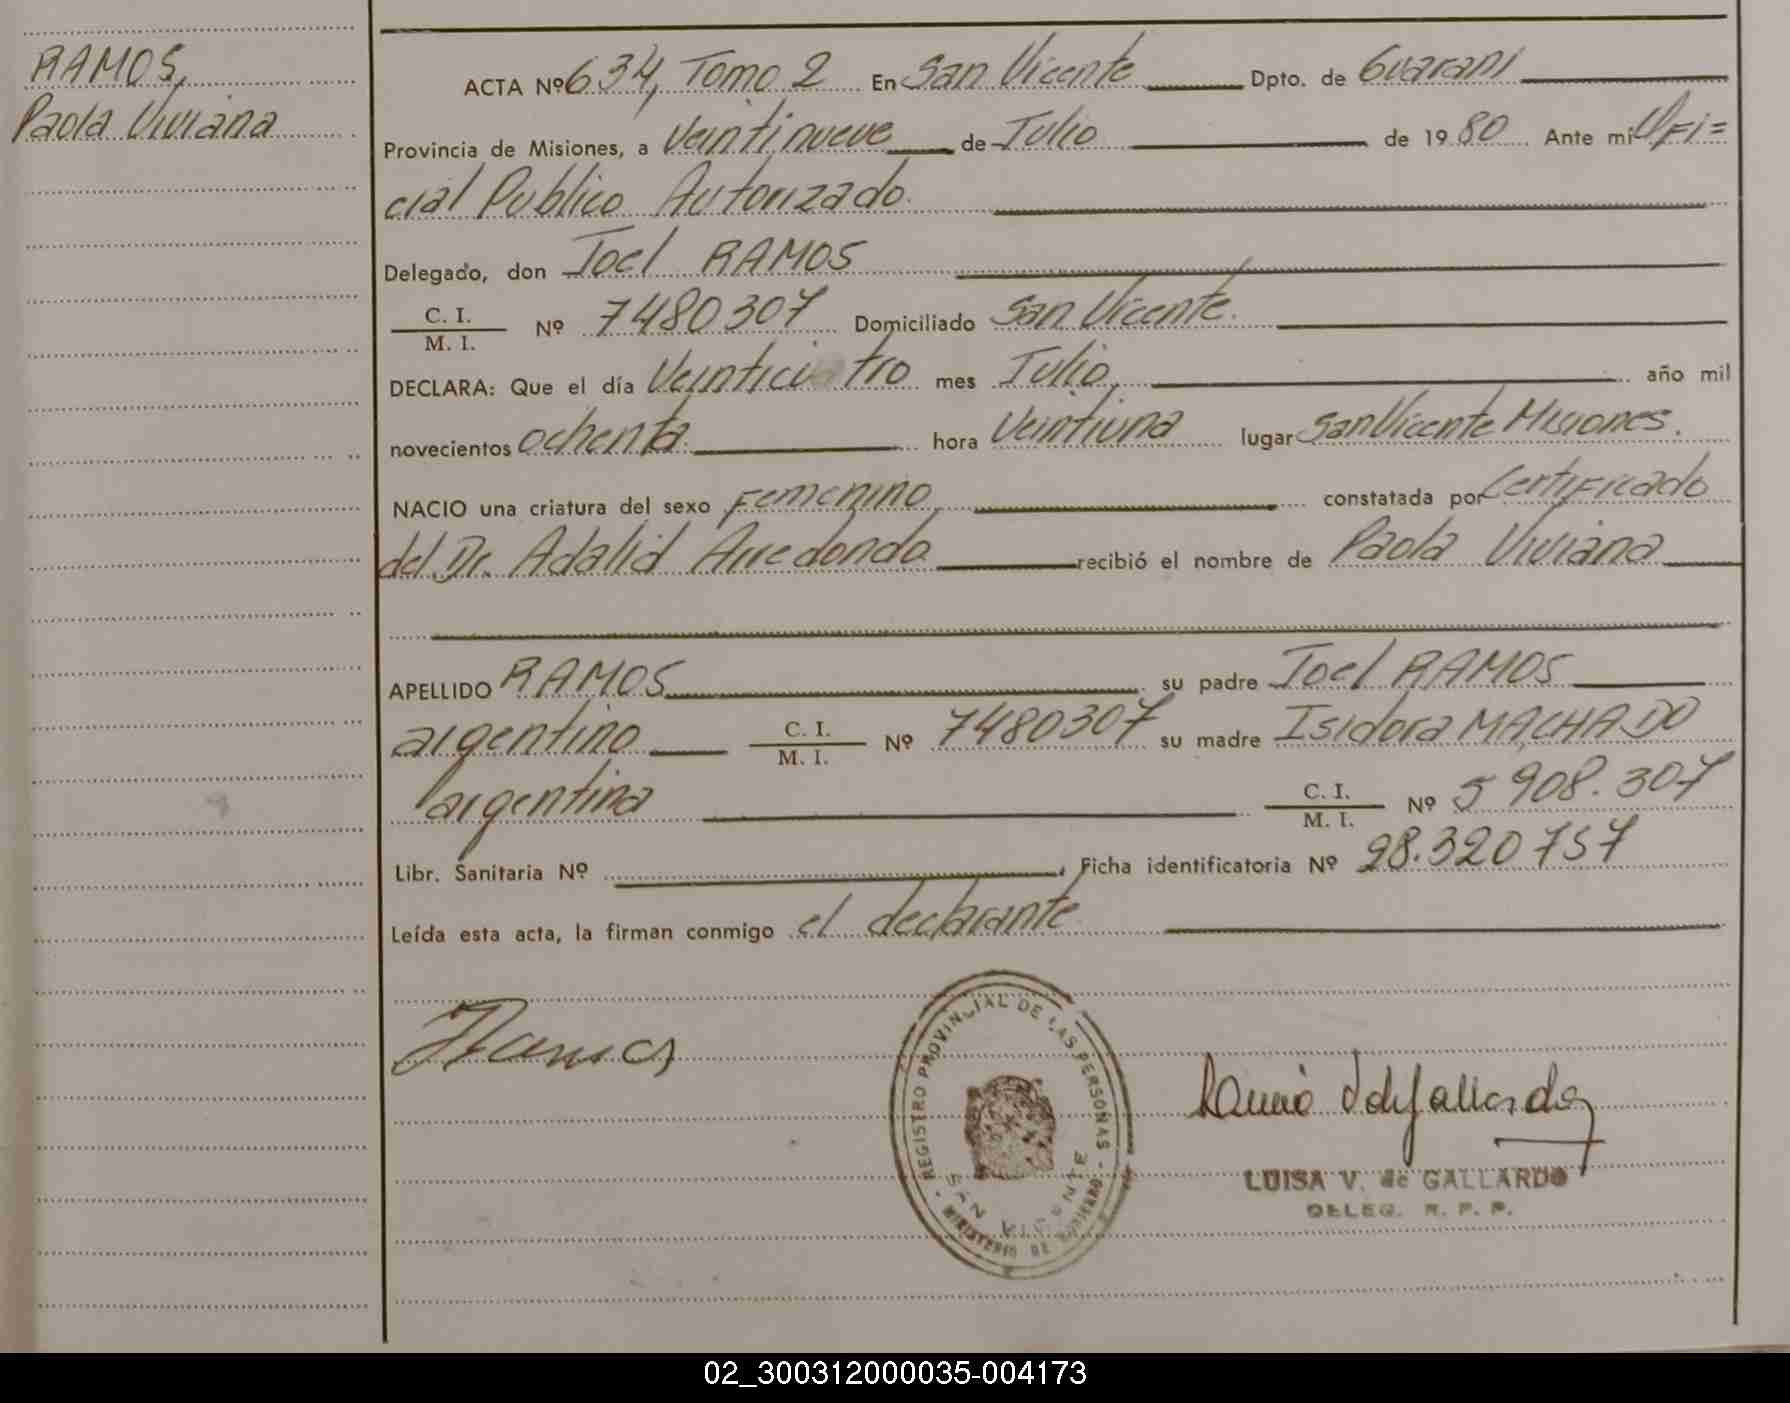 RAMOS,
Paola Viviana
ACTA Nº 634, Tomo 2 En San Vicente Dpto. de Guaraní
Provincia de Misiones, a Veintinueve de Julio de 1980 Ante mi Ofi=
cial Publico Autorizado.
Delegado, don Joel RAMOS
C. I.
M. I.
Nº 7480307 Domiciliado San Vicente.
DECLARA: Que el día Veintici tro mes Julio, año mil
novecientos ochenta hora Veintiuna lugar San Vicente Misiones.
NACIO una criatura del sexo Femenino, constatada por Certificado
del Dr. Adalid Arredondo recibió el nombre de Paola Viviana
APELLIDO RAMOS su padre Joel RAMOS
argentino C. I.
M. I. Nº 7480307 su madre Isidora MACHADO
argentina C. I.
M. I. Nº 5908.307
Libr. Sanitaria Nº Ficha identificatoria Nº 28.320757
Leída esta acta, la firman conmigo el declarante
Ramos
REGISTRO PROVINCIAL DE LAS PERSONAS
SAN VICENTE
MINISTERIO DE GOBIERNO
LUISA V. de GALLARDO
DELEG. R. P. P.
02_300312000035-004173